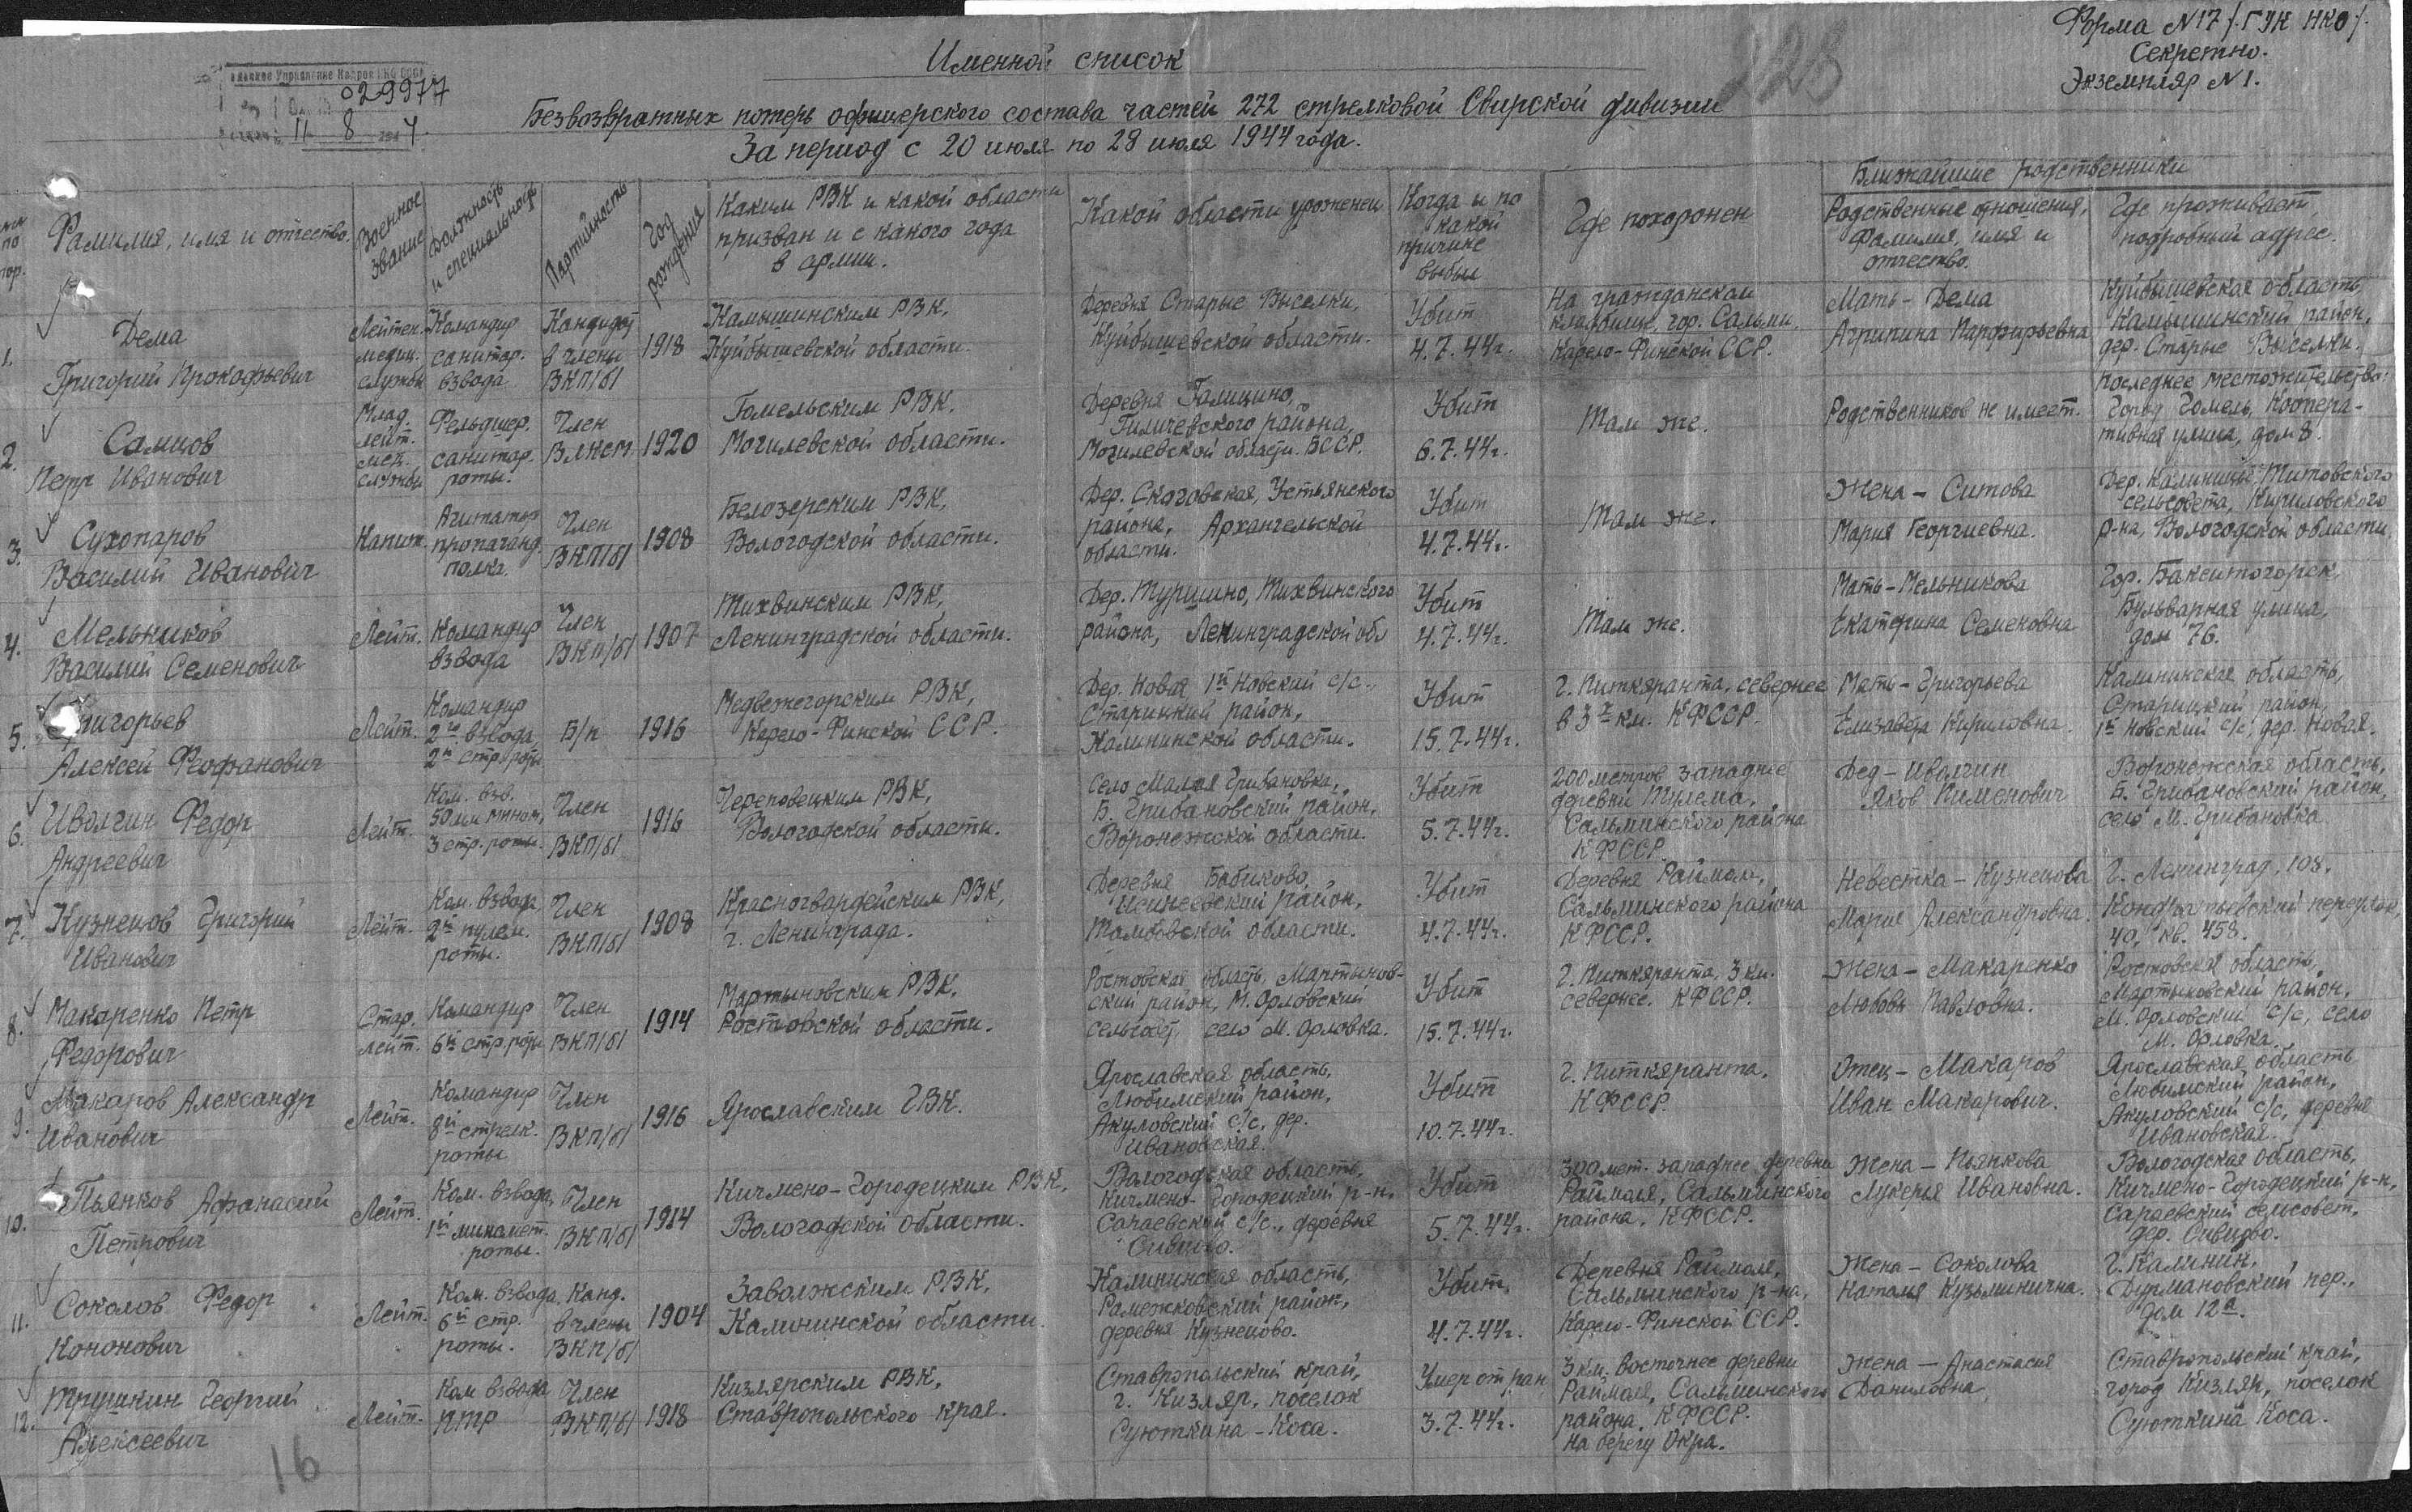 Форма №17 /.ГУК НКО/.
Секретно.
Экземпляр №1.
Именной список
029977
11 8 4
Безвозвратных потерь офицерского состава частей 272 стрелковой Свирской дивизии
За период с 20 июля по 28 июля 1944 года.
по
пор.
Фамилия, имя и отчество.
Военное
звание
Должность
и специальность
Партийность
Год
рождения
Каким РВК и какой области
призван и с какого года
в армии.
Какой области уроженец
Когда и по
какой
причине
выбыл
Где похоронен
Ближайшие родственники
Родственные отношения,
фамилия, имя и
отчество.
Где проживает,
подробный адрес.
1.
Дема
Григорий Прокофьевич
Лейтен.
медиц.
службы
Командир
санитар.
взвода
Кандидат
в члены
ВКП/б/
1918
Камышинским РВК,
Куйбышевской области.
Деревня Старые Выселки,
Куйбышевской области.
Убит
4.7.44г.
На гражданском
кладбище, гор. Сальми,
Карело-Финской ССР.
Мать - Дема
Агрипина Парфирьевна
Куйбышевская область,
Камышинский район,
дер. Старые Выселки.
2.
Самцов
Петр Иванович
Млад.
лейт.
мед.
службы
Фельдшер.
санитар.
роты.
Член
ВЛКСМ
1920
Гомельским РВК,
Могилевской области.
Деревня Галицино,
Могилевской области. БССР.
Убит
6.7.44г.
Там же.
Родственников не имеет.
Последнее местожительство:
Город Гомель, Коопера-
тивная улица, дом 8.
3.
Сухопаров
Василий Иванович
Капит.
Агитатор
пропаганд.
полка.
Член
ВКП/б/
1908
Белозерским РВК,
Вологодской области.
Дер. Скоговская, Устьянского
района, Архангельской
области.
Убит
4.7.44г.
Там же.
Жена - Ситова
Мария Георгиевна.
Дер. Калиницы, Титовского
сельсовета, Кириловского
р-на, Вологодской области.
4.
Мельников
Василий Семенович
Лейт.
Командир
взвода
Член
ВКП/б/
1907
Тихвинским РВК,
Ленинградской области.
Дер. Туршино, Тихвинского
района, Ленинградской обл
Убит
4.7.44г.
Там же.
Мать - Мельникова
Екатерина Семеновна
Гор. Бакситогорск,
Бульварная улица,
дом 76.
5.
Григорьев
Алексей Феофанович
Лейт.
Командир
2го взвода
2й стр роты
Б/п
1916
Медвежегорским РВК,
Карело-Финской ССР.
Дер. Новая 1й Новский с/с.,
Старицкий район,
Калининской области.
Убит
15.7.44г.
г. Питкяранта, севернее
в 3х км. КФССР.
Мать - Григорьева
Елизавета Кириловна.
Калининская область,
Старицкий район,
1й Новский с/с, дер. Новая.
6.
Иволгин Федор
Андреевич
Лейт.
Ком. взв.
50 мм мином,
3 стр. роты.
Член
ВКП/б/
1916
Череповецким РВК,
Вологодской области.
Село Малая Грибановка,
Б. Грибановский район,
Воронежской области.
Убит
5.7.44г.
200 метров западнее
деревни Тулема,
Сальминского района
КФССР.
Дед - Иволгин
Яков Пименович
Воронежская область,
Б. Грибановский район,
село М. Грибановка
7.
Кузнецов Григорий
Иванович
Лейт.
Ком. взвода
2й пулем.
роты.
Член
ВКП/б/
1908
Красногвардейским РВК,
г. Ленинграда.
Деревня Бабиково,
район,
Тамбовской области.
Убит
4.7.44г.
Деревня Раймоля,
Сальминского района
КФССР.
Невестка - Кузнецова
Мария Александровна.
г. Ленинград, 108,
Кондратьевский переулок,
40, кв. 458.
8.
Макаренко Петр
Федорович
Стар.
лейт.
Командир
6й стр. роты
Член
ВКП/б/
1914
Мартыновским РВК,
Ростовской области.
Ростовская область, Мартынов-
ский район, М. Орловский
сельсовет, село М. Орловка.
Убит
15.7.44г.
г. Питкяранта, 3 км.
севернее. КФССР.
Жена - Макаренко
Любовь Павловна.
Ростовская область,
Мартыновский район,
М. Орловский с/с, село
М. Орловка.
9.
Макаров Александр
Иванович
Лейт.
Командир
8й стрелк.
роты
Член
ВКП/б/
1916
Ярославским ГВК.
Ярославская область,
Любимский район,
Акуловский с/с, дер.
Ивановская.
Убит
10.7.44г.
г. Питкяранта,
КФССР.
Отец - Макаров
Иван Макарович.
Ярославская область
Любимский район,
Акуловский с/с, деревня
Ивановская.
10.
Пьянков Афанасий
Петрович
Лейт.
Ком. взвода,
1й миномет.
роты.
Член
ВКП/б/
1914
Кичмено-Городецким РВК,
Вологодской области.
Вологодская область,
Кичмено-Городецкий р-н,
Сараевский с/с., деревня
Сивцово.
Убит
5.7.44г.
300 мет. западнее деревни
Раймоля, Сальминского
района, КФССР.
Жена - Пьянкова
Лукерья Ивановна.
Вологодская область,
Кичмено-Городецкий р-н,
Сараевский сельсовет,
дер. Сивцово.
11.
Соколов Федор
Кононович
Лейт.
Ком. взвода,
6й стр.
роты.
Канд.
в члены
ВКП/б/
1904
Заволжским РВК,
Калининской области.
Калининская область,
Рамежковский район,
деревня Кузнецово.
Убит,
4.7.44г.
Деревня Раймоля,
Сальминского р-на,
Карело-Финской ССР.
Жена - Соколова
Наталья Кузьминична.
г. Калинин,
Дурмановский пер.,
дом 12а.
12.
Трушкин Георгий
Алексеевич
Лейт.
Ком взвода
ПТР
Член
ВКП/б/
1918
Кизлярским РВК,
Ставропольского края.
Ставропольский край,
г. Кизляр, поселок
Суюткина-Коса.
Умер от ран
3.7.44г.
3 км. восточнее деревни
Раймоля, Сальминского
района, КФССР.
На берегу Окра.
Жена - Анастасия
Даниловна,
Ставропольский край,
город Кизляр, поселок
Суюткина Коса.
16